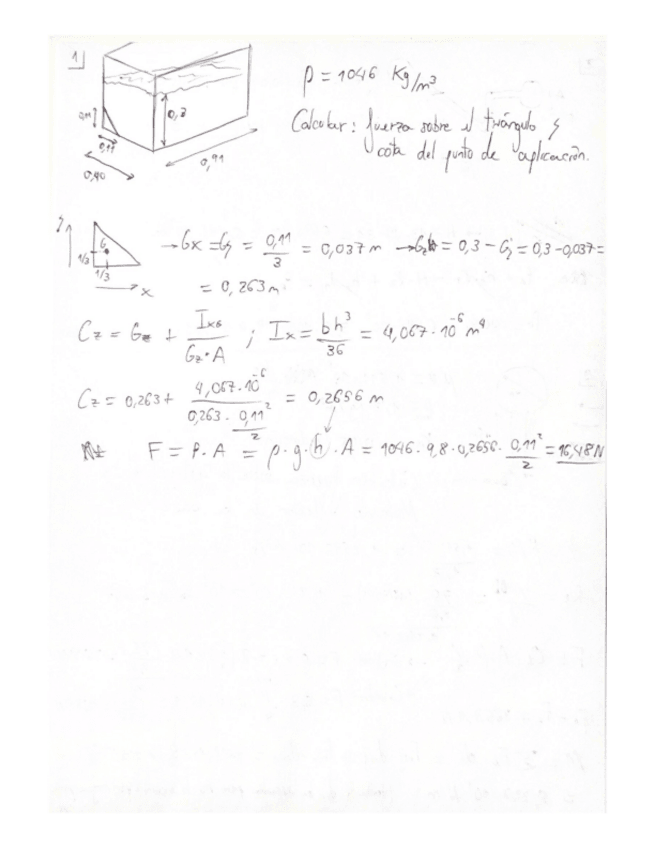 1
ρ = 1046 Kg/m³
Calcular: fuerza sobre el triángulo y
cota del punto de aplicación.
0,11
0,11
0,3
0,40
0,91
y
G
1/3
1/3
x
→ Gx = Gy = 0,11/3 = 0,037 m → Gz = 0,3 - Gy = 0,3 - 0,037 =
= 0,263 m
Cz = Gz + Ixg/(Gz·A) ; Ix = bh³/36 = 4,067·10⁻⁶ m⁴
Cz = 0,263 + 4,067·10⁻⁶/(0,263·0,11²/2) = 0,2656 m
F = P·A = ρ·g·h·A = 1046·9,8·0,2656·0,11²/2 = 16,48 N